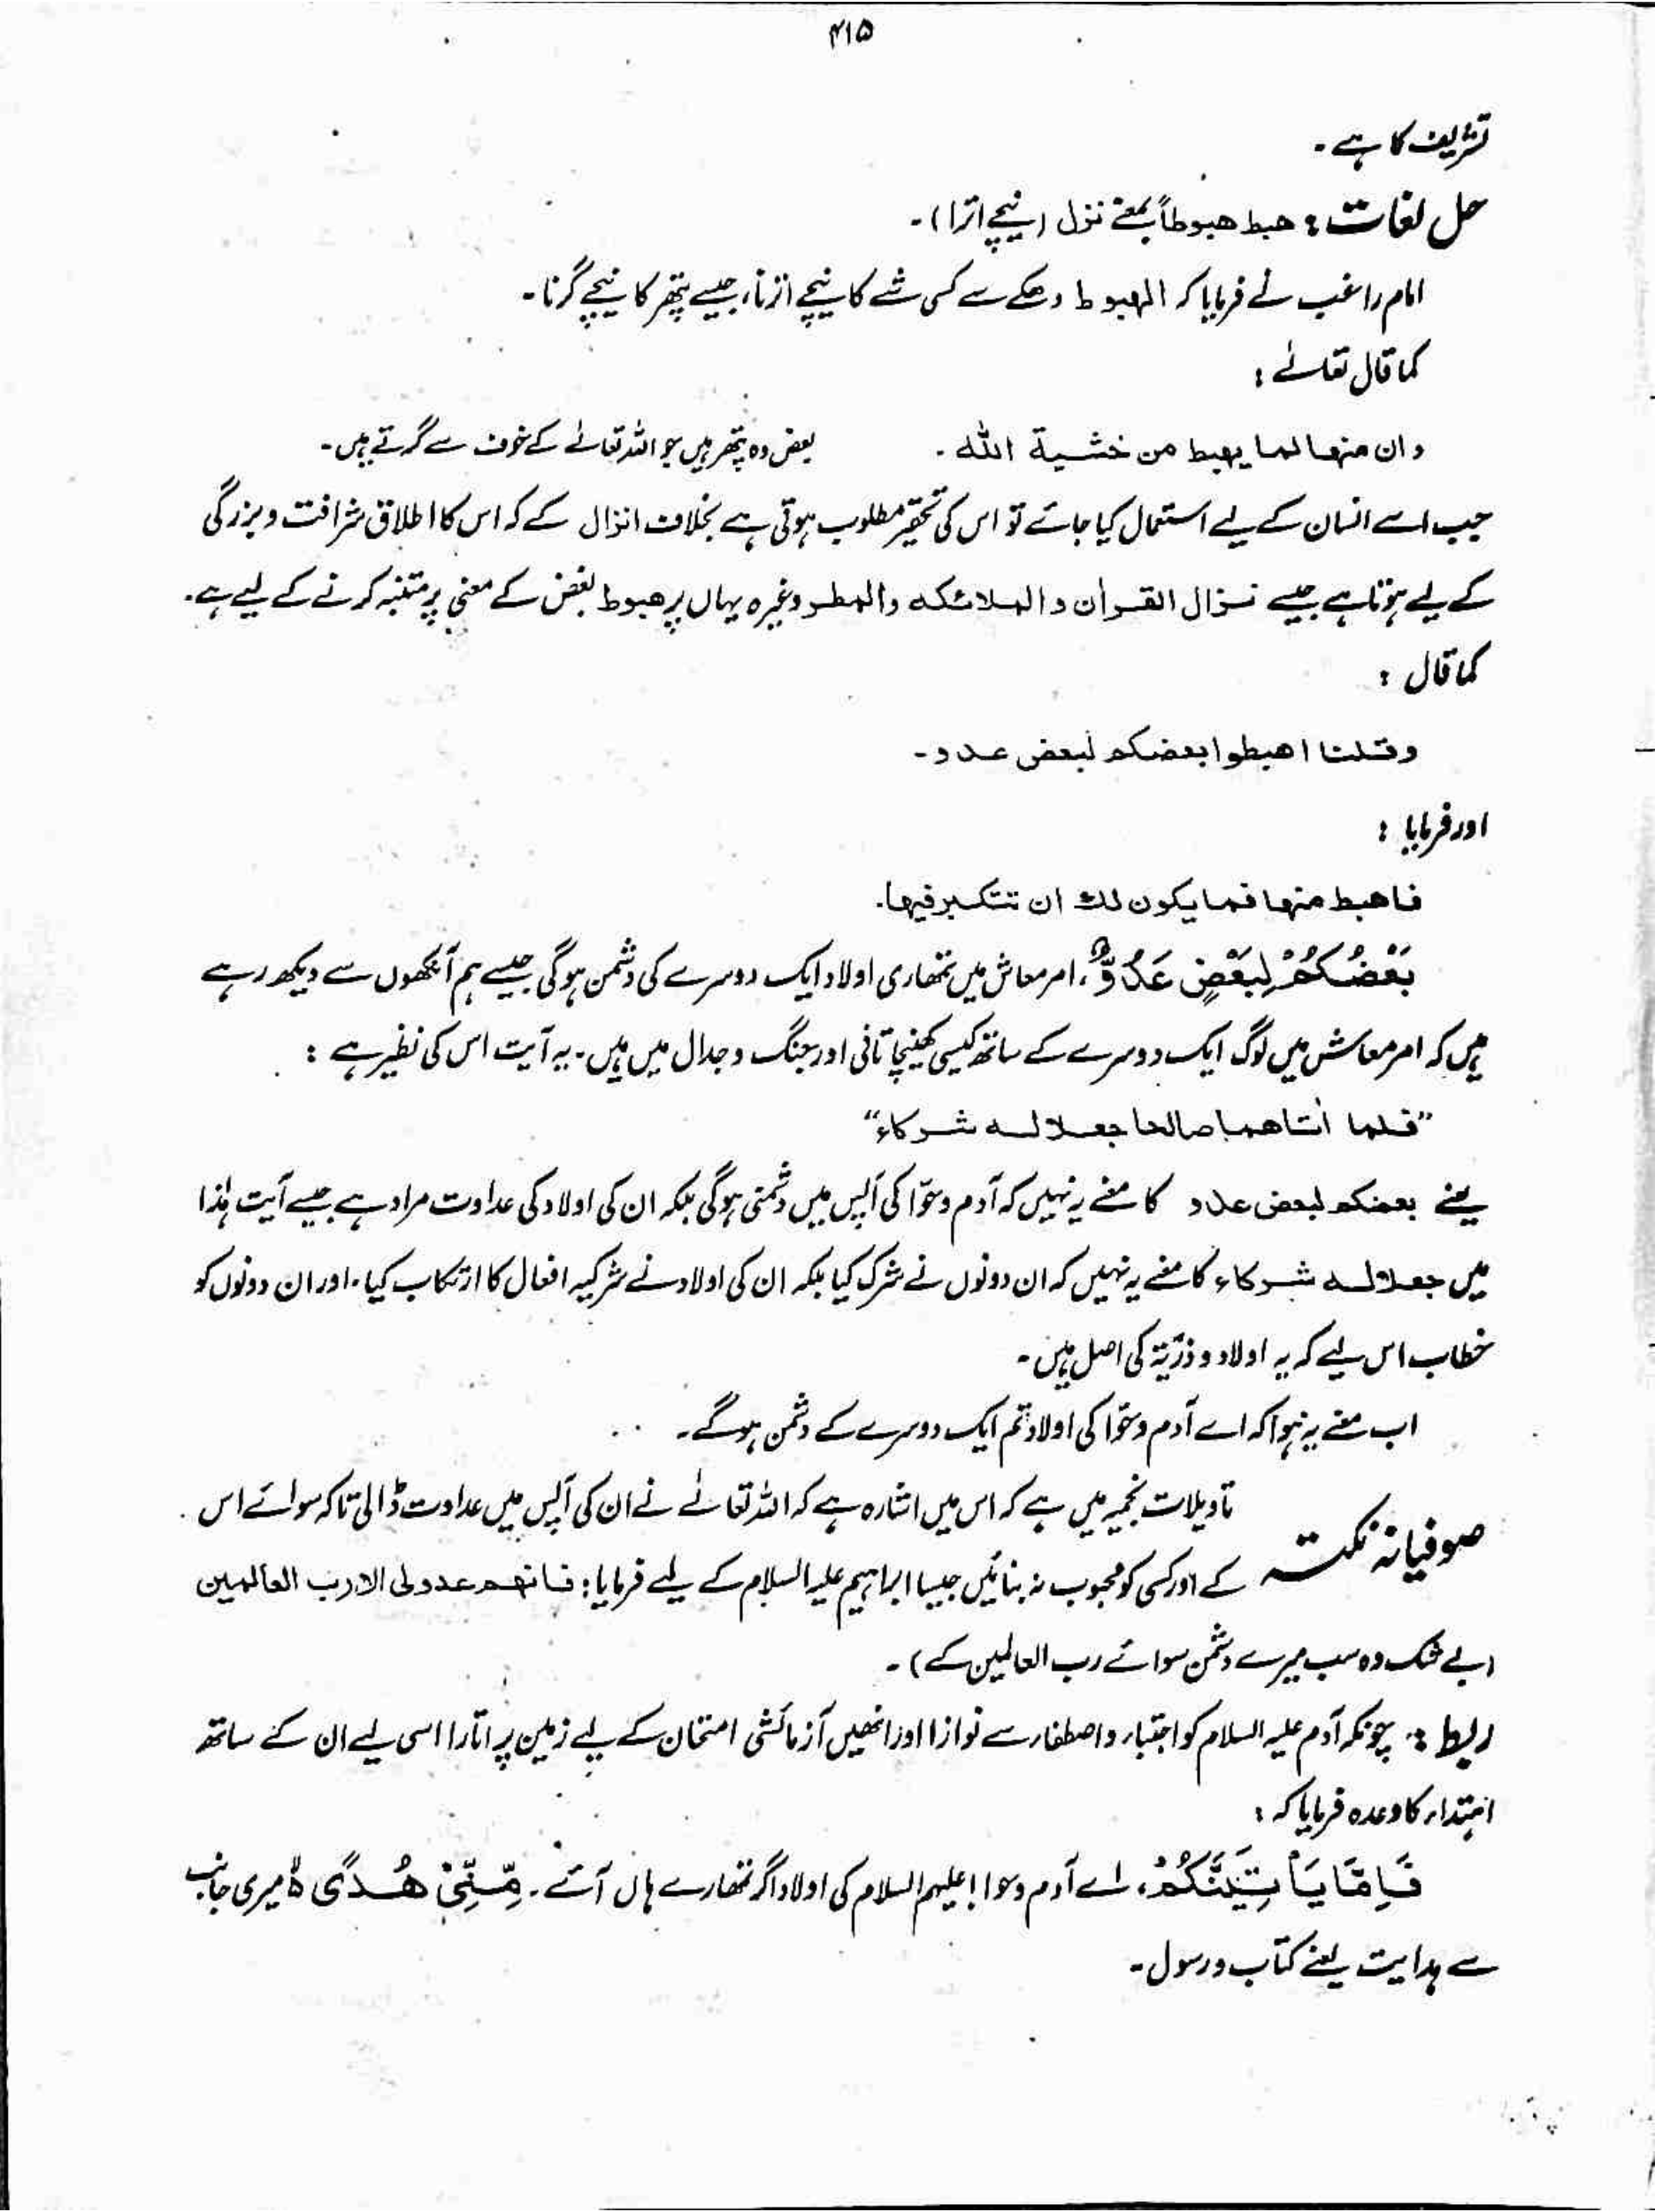 ۴۱۵
تشریف کا ہے۔
حل لغات : هبط هبوطاً بمعنے نزل (نیچے اترا)۔
امام راغب نے فرمایا کہ الهبوط دھکے سے کسی شے کا نیچے اترنا، جیسے پتھر کا نیچے گرنا۔
کما قال تعالےٰ :
وان منها لما يهبط من خشية الله ۔ بعض وہ پتھر ہیں جو اللہ تعالےٰ کے خوف سے گرتے ہیں۔
جب اسے انسان کے لیے استعمال کیا جائے تو اس کی تحقیر مطلوب ہوتی ہے بخلاف انزال کے کہ اس کا اطلاق شرافت و بزرگی
کے لیے ہوتا ہے جیسے نزال القرأن والملائكه والمطر وغیرہ یہاں پر هبوط بغض کے معنی پر متنبہ کرنے کے لیے ہے۔
کما قال :
وقلنا اهبطوا بعضكم لبعض عدو۔
اور فرمایا :
فاهبط منها فما يكون لك ان تتكبر فيها۔
بَعْضُكُمْ لِبَعْضٍ عَدُوٌّ، امر معاش میں تمھاری اولاد ایک دوسرے کی دشمن ہوگی جیسے ہم آنکھوں سے دیکھ رہے
ہیں کہ امر معاش میں لوگ ایک دوسرے کے ساتھ کیسی کھینچا تانی اور جنگ و جدال میں ہیں۔ یہ آیت اس کی نظیر ہے :
“فلما أتاهما صالحا جعلا له شركاء“
یعنے بعضكم لبعض عدو کا معنے یہ نہیں کہ آدم و حوّا کی آپس میں دشمنی ہوگی بلکہ ان کی اولاد کی عداوت مراد ہے جیسے آیت ہٰذا
میں جعلا له شركاء کا معنے یہ نہیں کہ ان دونوں نے شرک کیا بلکہ ان کی اولاد نے شرکیہ افعال کا ارتکاب کیا۔ اور ان دونوں کو
خطاب اس لیے کہ یہ اولاد و ذرّیۃ کی اصل ہیں۔
اب معنے یہ ہوا کہ اے آدم و حوّا کی اولاد تم ایک دوسرے کے دشمن ہوگے۔
صوفیانہ نکتہ تأویلات نجمیہ میں ہے کہ اس میں اشارہ ہے کہ اللہ تعالےٰ نے ان کی آپس میں عداوت ڈالی تاکہ سوائے اس
کے اور کسی کو محبوب نہ بنائیں جیسا ابراہیم علیہ السلام کے لیے فرمایا : فانهم عدو لى الا رب العالمين
(بے شک وہ سب میرے دشمن سوائے رب العالمین کے)۔
ربط : چونکہ آدم علیہ السلام کو اجتباء و اصطفاء سے نوازا اور انھیں آزمائشی امتحان کے لیے زمین پر اتارا اسی لیے ان کے ساتھ
اہتداء کا وعدہ فرمایا کہ :
فَاِمَّا يَأْتِيَنَّكُمْ، اے آدم و حوا (علیہم السلام کی اولاد اگر تمھارے ہاں آئے۔ مِّنِّىْ هُدًى ۙ میری جانب
سے ہدایت یعنے کتاب و رسول۔